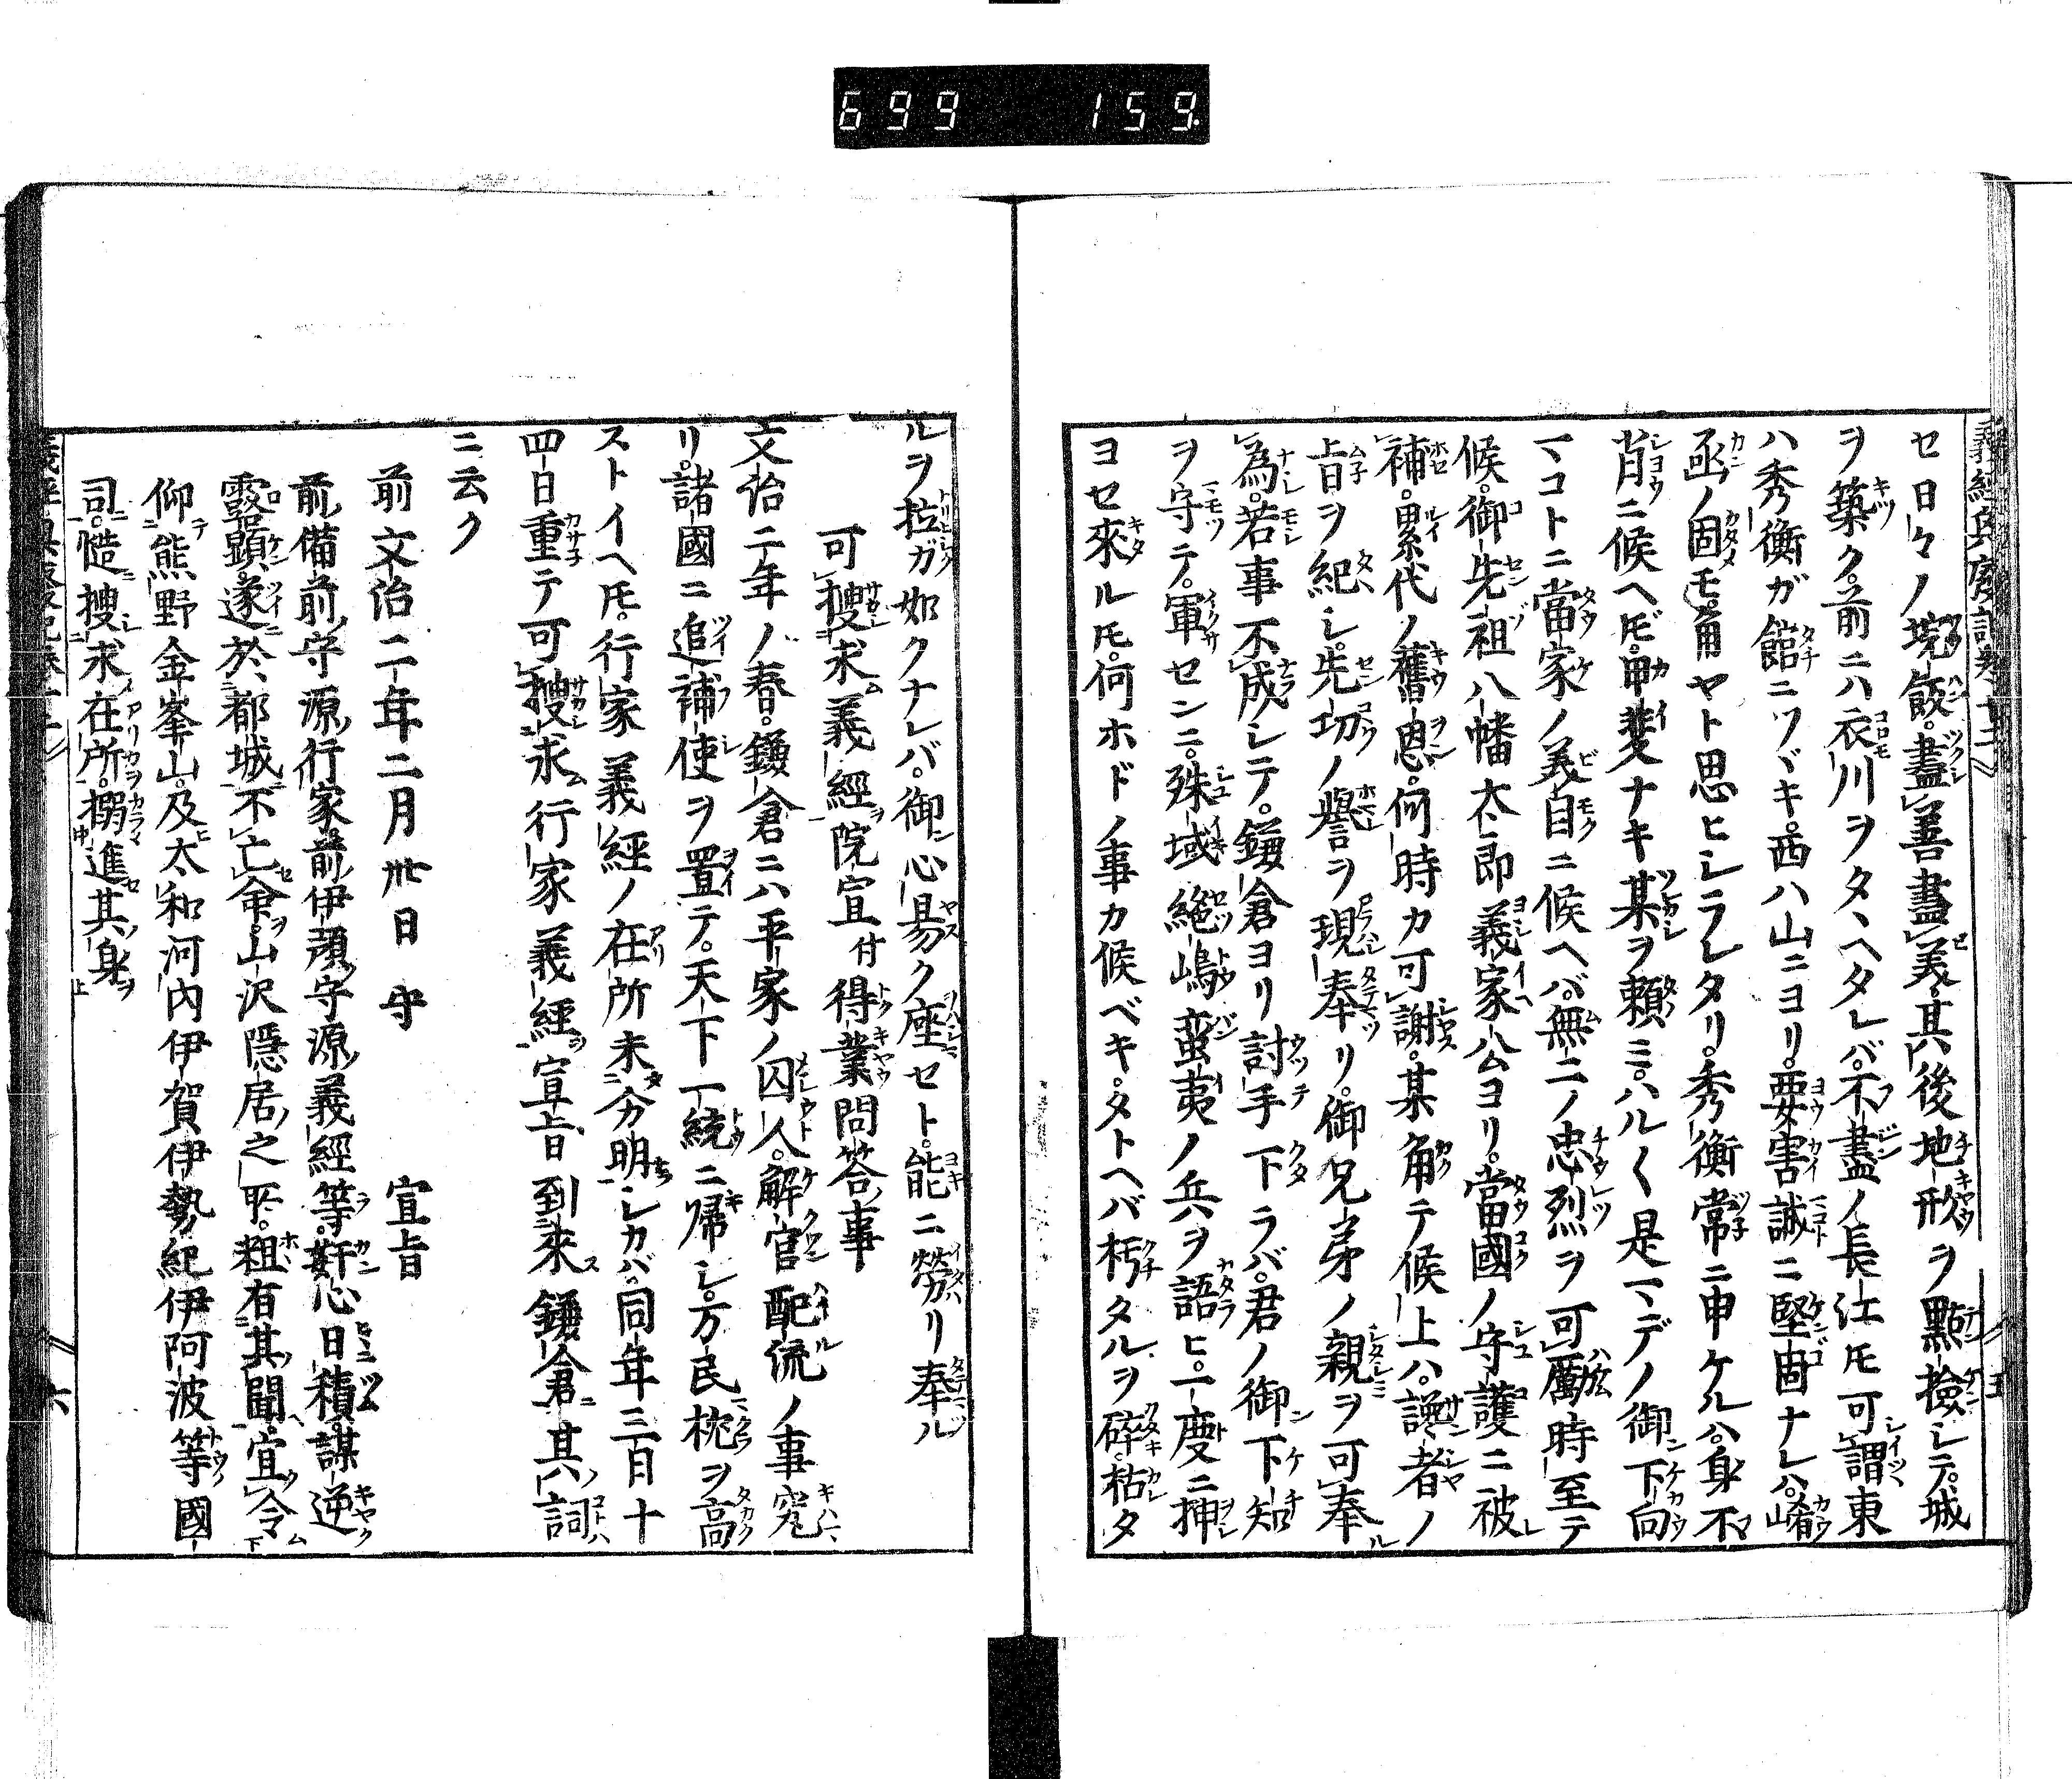 699 159
セ日々ノ埦飯盡善盡美其後地形ヲ點撿シテ城
ヲ築ク前ニハ衣川ヲタヽヘタレバ不盡ノ長江モ可謂東
ハ秀衡ガ館ニツヾキ西ハ山ニヨリ要害誠ニ堅固ナレハ崤
函ノ固モ角ヤト思ヒシラレタリ秀衡常ニ申ケルハ身不
肖ニ候ヘ𪜈甲斐ナキ某ヲ頼ミハル〱是マデノ御下向
マコトニ當家ノ美目ニ候ヘバ無二ノ忠烈ヲ可勵時至テ
候御先祖八幡太郎義家公ヨリ當國ノ守護ニ被
補累代ノ舊恩何時カ可謝某角テ候上ハ讒者ノ
旨ヲ糺シ先功ノ譽ヲ現奉リ御兄弟ノ親ヲ可奉
爲若事不成シテ鎌倉ヨリ討手下ラバ君ノ御下知
ヲ守テ軍センニ殊域絶嶋蛮夷ノ兵ヲ語ヒ一度ニ押
ヨセ來ル𪜈何ホドノ事カ候ベキタトヘバ朽タルヲ碎枯タ
ルヲ拉ガ如クナレバ御心易ク座セト能ニ勞リ奉ル
可捜求義經院宣付得業問答事
文治二年ノ春鎌倉ニハ平家ノ囚人解官配流ノ事究
リ諸國ニ追補使ヲ置テ天下一統ニ帰シ万民枕ヲ高
ストイヘ𪜈行家義經ノ在所未分明シカバ同年三百十
四日重テ可捜求行家義經宣旨到來鎌倉其詞
ニ云ク
前文治二年二月卅日守 宣旨
前備前守源行家前伊豫守源義經等奸心日積謀逆
露顕遂於都城不亡命山沢隠居之所粗有其聞宜令
仰熊野金峯山及大和河内伊賀伊勢紀伊阿波等國
司慥捜求在所搦進其身
六